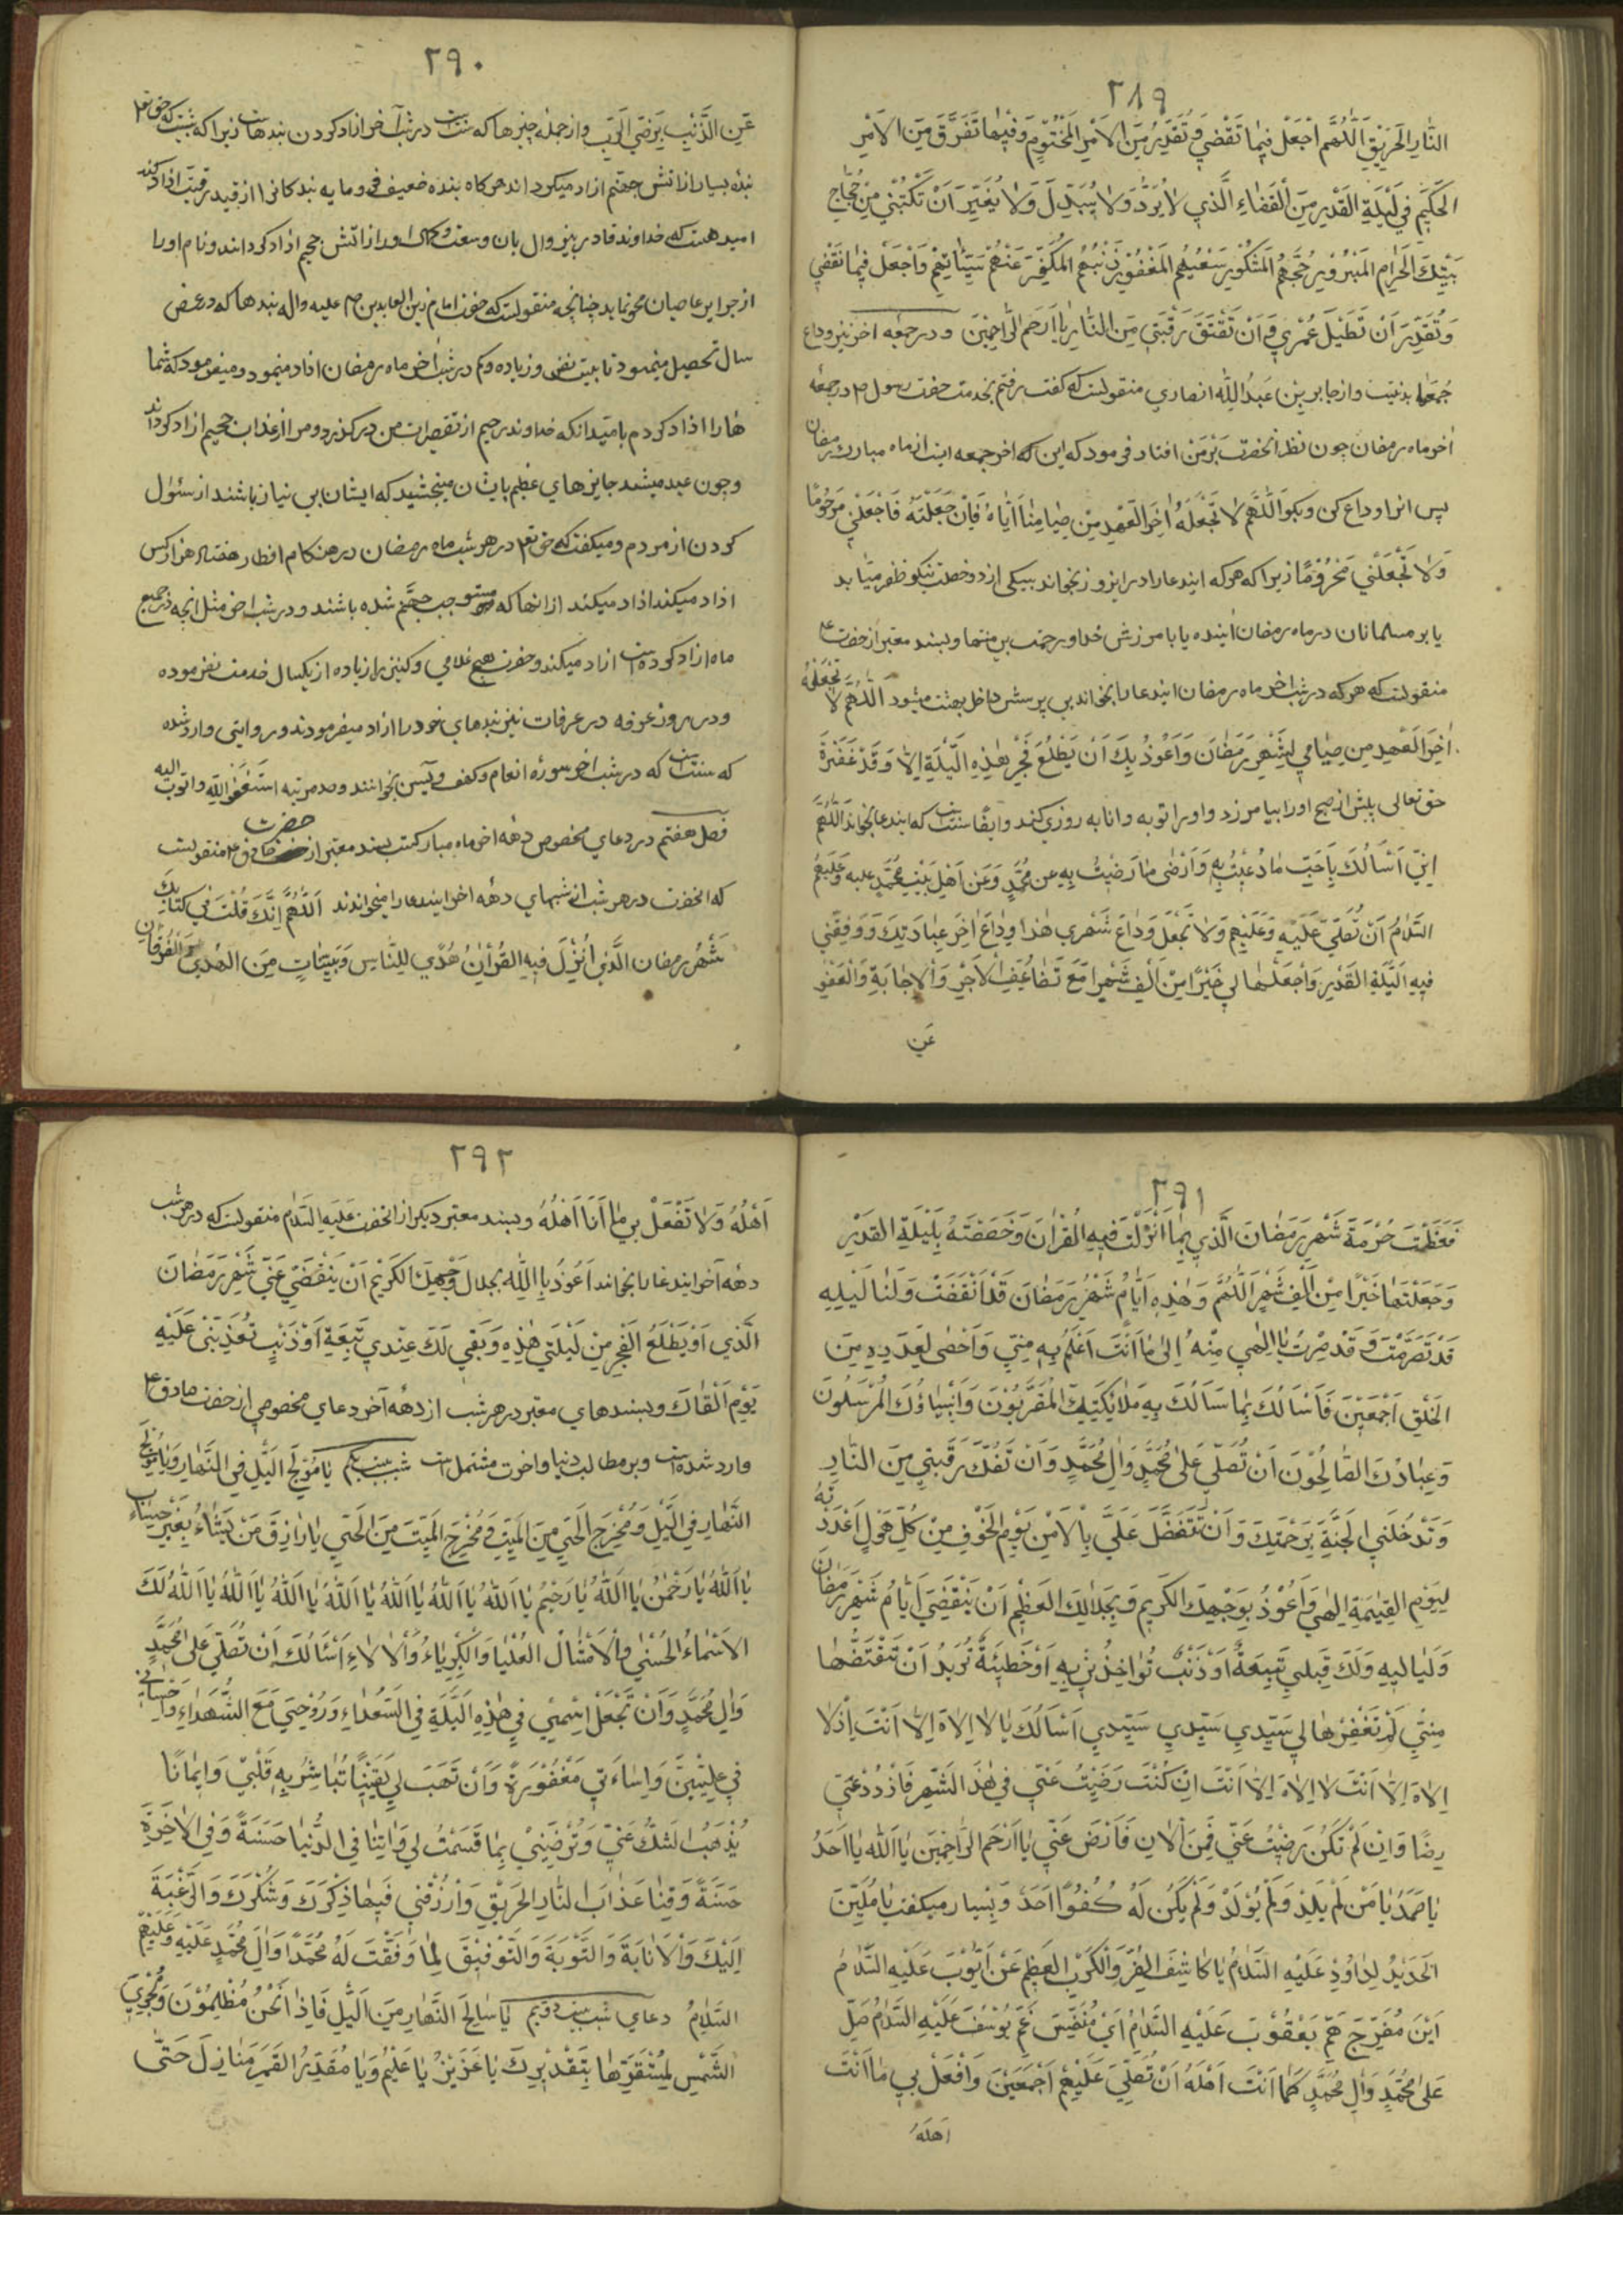 ٢٨٩
النّارِ الحَرِيقِ اَللّهُمَّ اجْعَلْ فِيمَا تَقْضِي وَتُقَدِّرُ مِنَ الاَمْرِ المَحْتُومِ وَفِيمَا تَفْرُقُ مِنَ الاَمْرِ
الحَكِيمِ فِي لَيْلَةِ القَدْرِ مِنَ القَضَاءِ الَّذِي لا يُرَدُّ وَلا يُبَدَّلُ وَلا يُغَيَّرُ اَنْ تَكْتُبَنِي مِنْ حُجّاجِ
بَيْتِكَ الحَرامِ المَبْرُورِ حَجُّهُمُ المَشْكُورِ سَعْيُهُمُ المَغْفُورِ ذَنْبُهُمُ المُكَفَّرِ عَنْهُمْ سَيِّئَاتُهُمْ وَاجْعَلْ فِيمَا تَقْضِي
وَتُقَدِّرُ اَنْ تُطِيلَ عُمْرِي وَ اَنْ تَعْتِقَ رَقَبَتِي مِنَ النّارِ يا اَرْحَمَ الرّاحِمِينَ و در جمعه اخر نیز وداع
جُمَعها بد نیست و از جابر بن عَبدُ اللّه انصاری منقولست که کفت رفتم بخدمت حضرت رسول در جمعه
اخر ماه رمضان چون نظر انحضرت بَرْمَن افتاد فرمود که این که اخر جمعه است از ماه مبارک رمضان
پس انرا وداع کن و بکو اَللّهُمَّ لا تَجْعَلْهُ اخِرَ العَهْدِ مِنْ صِيامِنا اَيّاهُ فَاِنْ جَعَلْتَهُ فَاجْعَلْنِي مَرْحُومًا
وَلا تَجْعَلْنِي مَحْرُومًا زیرا که هر که ایندعا را در این روز بخواند بیکی از دو خصلت نیکو ظفر میابد
یا بر مسلمانان در ماه رمضان اینده یا بامرزش خدا و رحمت بی منتها و بسند معتبر از حضرت
منقولست که هر که در شب اخر ماه رمضان ایندعا را بخواند بی پرسش داخل بهشت میشود اَللّهُمَّ لا تَجْعَلْهُ
اخِرَ العَهْدِ مِن صِيامِي لِشَهْرِ رَمَضانَ وَاَعُوذُ بِكَ اَنْ يَطْلُعَ فَجْرُ هٰذِهِ اللَّيْلَةِ اِلاّ وَقَدْ غَفَرْتَ
حق تعالی پیش از صبح اورا بیامرزد و اورا توبه و انابه روزی کند و ایضا سنتست که ایندعا بخواند اَللّهُمَّ
اِنِّي اَسْأَلُكَ بِاَحَبِّ ما دُعِيتَ بِهِ وَاَرْضى ما رَضِيتَ بِهِ عن مُحَمَّدٍ وَعَن اَهْلِ بَيْتِ مُحَمَّدٍ علیه وَعَلَيْهِمُ
السَّلامُ اَنْ تُصَلِّيَ عَلَيْهِ وَعَلَيْهِم وَلا تَجْعَل وَداعَ شَهْرِي هٰذا وِداعَ اخِرِ عِبادَتِكَ وَوَفِّقْنِي
فِيهِ اللَّيْلَةِ القَدْرِ وَاجْعَلْها لي خَيْرًا مِنْ اَلْفِ شَهْرٍ مَعَ تَضاعُفِ الاَجْرِ وَالاِجابَةِ وَالعَفْوِ
عَن
٢٩٠
عَنِ الذَّنْبِ بِرِضَى الرَّبِّ و از جمله چیزها که سنتست در شب آخر ازاد کردن بندهاست زیرا که شبیست که حق تعالی
بنده بسیار از اتش جهنم ازاد میکرداند هر کاه بنده ضعیف فرومایه بندکانرا از قید رقیت ازاد کند
امید هست که خداوند قادر ... اورا از اتش جحیم ازاد کرداند و نام اورا
از جراید عاصیان محو نماید چنانچه منقولست که حضرت امام زین العابدین علیه واله بندها که در عرض
سال تحصیل مینمود تا بیست نفر و زیاده و کم در شب اخر ماه رمضان ازاد مینمود و میفرمود که شما
هارا ازاد کردم بامید انکه خداوند رحیم از تقصیرات من در کذرد و مرا از عذاب جحیم ازاد کرداند
و چون عید میشد جایزهای عظیم بایشان میبخشید که ایشان بی نیاز باشند از سئول
کردن از مردم و میکفت که حق تعالی در هر شب ماه رمضان در هنکام افطار هفتاد هزار کس
ازاد میکند ازاد میکند از انها که مستوجب جهنم شده باشند و در شب اخر مثل انچه در جمیع
ماه ازاد کرده است ازاد میکند و حضرت هیچ غلامی و کنیز را زیاده از یکسال خدمت نفرموده
و در روز عرفه در عرفات نیز بندهای خود را ازاد میفرمودند و روایتی وارد شده
که سنتست که در شب اخر سوره انعام و کهف و یس بخوانند و صد مرتبه اَستَغفِرُ اللّه واتوب الیه
فصل هفتم در دعای مخصوص دهه اخر ماه مبارکست بسند معتبر از حضرت صادق منقولست
که انحضرت در هر شب از شبهای دهه اخر ایندعا را میخواندند اَللّهُمَّ اِنَّكَ قُلْتَ فِي كِتابِكَ
شَهْرُ رمضان الَّذِي اُنْزِلَ فِيهِ القُرْآنُ هُدًى لِلنّاسِ وَبَيِّناتٍ مِنَ الهُدى وَالفُرْقانِ
٢٩١
فَعَظَّمْتَ حُرْمَةَ شَهْرِ رَمَضانَ الَّذِي بِما اَنْزَلْتَ فِيهِ القُرْانَ وَخَصَصْتَهُ بِلَيْلَةِ القَدْرِ
وَجَعَلْتَها خَيْرًا مِنْ اَلْفِ شَهْرٍ اَللّهُمَّ وَهٰذِهِ اَيّامُ شَهْرِ رَمَضانَ قَدْ اَنْقَضَتْ وَلَنا لَيْلِهِ
قَدْ تَصَرَّمْتَ وَقَدْ صِرْتُ يا اِلٰهِي مِنْهُ اِلى ما اَنْتَ اَعْلَمُ بِهِ مِنّي وَاَحْصى لِعَدَدِهِ مِنَ
الخَلْقِ اَجْمَعِينَ فَاَسْاَلُكَ بِما سَاَلَكَ بِهِ مَلائِكَتِكَ المُقَرَّبُونَ وَاَنْبِياؤُكَ المُرْسَلُونَ
وَعِبادُكَ الصّالِحُونَ اَنْ تُصَلِّيَ عَلى مُحَمَّدٍ وَالِ مُحَمَّدٍ وَاَنْ تَفُكَّ رَقَبَتِي مِنَ النّارِ
وَتُدْخِلَنِي الجَنَّةَ بِرَحْمَتِكَ وَاَنْ تَتَفَضَّلَ عَلَيَّ بِالاَمْنِ يَوْمِ الخَوْفِ مِنْ كُلِّ هَوْلٍ اَعْدَدْتَهُ
لِيَوْمِ القِيٰمَةِ اِلهِي وَاَعُوذُ بِوَجْهِكَ الكَرِيمِ وَبِجَلالِكَ العَظِيمِ اَنْ يَنْقَضِيَ اَيّامُ شَهْرِ رَمَضانَ
وَلَيالِيهِ وَلَكَ قِبَلِي تَبِعَةٌ اَوْ ذَنْبٌ تُواخِذُنِي بِهِ اَوْ خَطِيئَةٌ تُرِيدُ اَنْ تَقْتَصَّها
مِنّي لَمْ تَغْفِرْها لِي سَيِّدِي سَيِّدِي سَيِّدِي اَسْاَلُكَ يا لا اِلاهَ اِلاّ اَنْتَ اِذْ لا
اِلاهَ اِلاّ اَنْتَ لا اِلاهَ اِلاّ اَنْتَ اِنْ كُنْتَ رَضِيتَ عَنّي فِي هٰذَا الشَّهْرِ فَازْدُدْ عَنّي
رِضًا وَاِنْ لَمْ تَكُنْ رَضِيتَ عَنّي فَمِنَ الاٰنِ فَارْضَ عَنّي يا اَرْحَمَ الرّاحِمِينَ يا اَللهُ يا اَحَدُ
يا صَمَدُ يا مَنْ لَمْ يَلِدْ وَلَمْ يُولَدْ وَلَمْ يَكُن لَهُ كُفُوًا اَحَدٌ وبسیار میکفت يا مُلَيِّنَ
الحَدِيدِ لِداوُدِ عَلَيْهِ السَّلامُ يا كاشِفَ الضُّرِّ وَالكَرْبِ العَظِيمِ عَنْ اَيُّوبَ عَلَيْهِ السَّلامُ
اَيْنَ مُفَرِّجَ هَمِّ يَعْقُوبَ عَلَيْهِ السَّلامُ اَيْ مُنَفِّسَ غَمِّ يُوسُفَ عَلَيْهِ السَّلامُ صَلِّ
عَلى مُحَمَّدٍ وَالِ مُحَمَّدٍ كَما اَنْتَ اَهْلُهُ اَنْ تُصَلِّيَ عَلَيْهِمْ اَجْمَعِينَ وَافْعَلْ بِي ما اَنْتَ
اَهْلُهُ
٢٩٢
اَهْلُهُ وَلا تَفْعَلْ بِي ما اَنَا اَهْلُهُ وبسند معتبر دیکر از انحضرت عَلَيْهِ السَّلامُ منقولست که در هر شب
دهه آخر ایندعا را بخواند اَعُوذُ بِاللّهِ بجلال وَجْهِكَ الكَرِيمِ اَنْ يَنْقَضِيَ عَنّي شَهْرِ رَمَضانَ
الَّذِي اَوْ يَطْلُعَ الفَجْرِ مِنْ لَيْلَتِي هٰذِهِ وَبَقِيَ لَكَ عِنْدِي تَبِعَةٍ اَوْ ذَنْبٍ تُعَذِّبُنِي عَلَيْهِ
يَوْمَ اَلْقاكَ و بسندهای معتبر در هر شب از دهه آخر دعای مخصوصی از حضرت صادق
وارد شده است و بر مطالب دنیا و اخرت مشتمل است شب بیست یکم يا مُولِجَ اللَّيْلِ فِي النَّهارِ وَيا مُولِجَ
النَّهارِ فِي اللَّيْلِ وَمُخْرِجَ الحَيِّ مِنَ المَيِّتِ وَمُخْرِجَ المَيِّتِ مِنَ الحَيِّ يا رازِقَ مَنْ يَشاءُ بِغَيْرِ حِسابٍ
يا اَللهُ يا رَحْمٰنُ يا اَللهُ يا رَحِيمُ يا اَللهُ يا اَللهُ يا اَللهُ يا اَللهُ يا اَللهُ يا اَللهُ لَكَ
الاَسْماءُ الحُسْنى وَالاَمْثالُ العُلْيا وَالكِبْرِياءُ وَالالاءِ اَسْئَالُكَ اَنْ تُصَلِّيَ عَلى مُحَمَّدٍ
وَالِ مُحَمَّدٍ وَاَنْ تَجْعَلَ اِسْمِي فِي هٰذِهِ اللَّيْلَةِ فِي السُّعَداءِ وَرُوحِيَ مَعَ الشُّهَداءِ وَاِحْسانِي
فِي عِلِّيِّينَ وَاِساءَتِي مَغْفُورَةً وَاَنْ تَهَبَ لِي يَقِينًا تُباشِرُ بِهِ قَلْبِي وَاِيمانًا
يُذْهِبُ الشَّكَّ عَنّي وَتُرْضِيَنِي بِما قَسَمْتَ لِي وَاتِنا فِي الدُّنْيا حَسَنَةً وَفِي الاخِرَةِ
حَسَنَةً وَقِنا عَذابَ النّارِ الحَرِيقِ وَارْزُقْنِي فِيها ذِكْرَكَ وَشُكْرَكَ وَالرَّغْبَةَ
اِلَيْكَ وَالاِنابَةَ وَالتَّوْبَةَ وَالتَّوْفِيقَ لِما وَفَّقْتَ لَهُ مُحَمَّدًا وَالَ مُحَمَّدٍ عَلَيْهِ وَعَلَيْهِمُ
السَّلامُ دعای شب بیست دویم يا سالِخَ النَّهارِ مِنَ اللَّيْلِ فَاِذا نَحْنُ مُظْلِمُونَ وَمُجْرِيَ
الشَّمْسِ لِمُسْتَقَرِّها بِتَقْدِيرِكَ يا عَزِيزُ يا عَلِيمُ وَيا مُقَدِّرَ القَمَرِ مَنازِلَ حَتّى